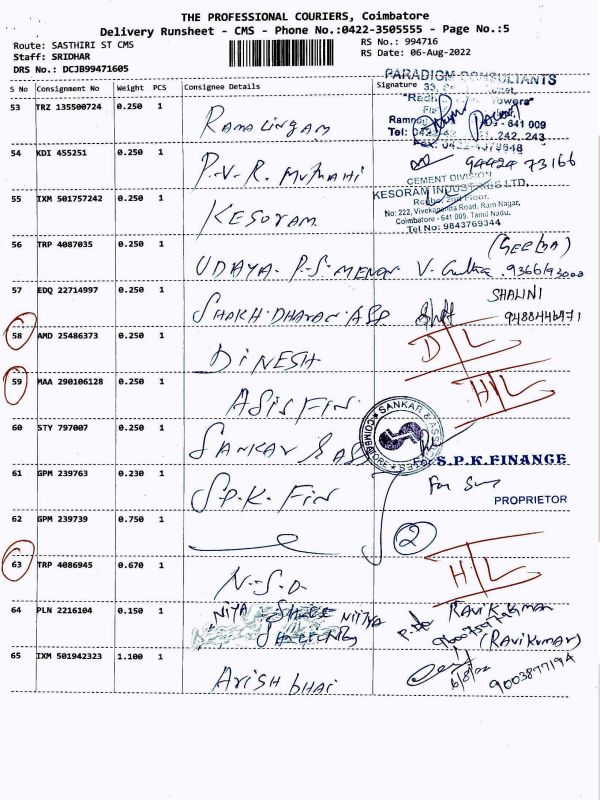 THE PROFESSIONAL COURIERS, Coimbatore
Delivery Runsheet - CMS - Phone No.:0422-3505555 - Page No.:5
Route: SASTHIRI ST CMS
RS No.: 994716
Staff: SRIDHAR
RS Date: 06-Aug-2022
DRS No.: DCJB99471605
PARADIGM CONSULTANTS
S No Consignment No Weight PCS Consignee Details Signature
53 TRZ 135500724 0.250 1 RAMALINGAM
641 009
Tel: 242, 243
54 KDI 455251 0.250 1 P.V.R. 94424 73166
CEMENT DIVISION
KESORAM INDUSTRIES LTD,
55 IXM 501757242 0.250 1 KESORAM
No: 222, Vivekananda Road, Ram Nagar,
Coimbatore - 641 009. Tamil Nadu.
Tel No: 9843769344
56 TRP 4087035 0.250 1 UDAYA. P.S. MENON
57 EDQ 22714997 0.250 1 SHALINI
58 AMD 25486373 0.250 1 DINESH D/L
59 MAA 290106128 0.250 1 ASIS FIN H/L
60 STY 797007 0.250 1 SANKAR & ASS
SANKAR & ASSOCIATES COIMBATORE
For S.P.K.FINANCE
61 GPM 239763 0.230 1 S.P.K. FIN
PROPRIETOR
62 GPM 239739 0.750 1 2
63 TRP 4086945 0.670 1 N.S.D H/L
64 PLN 2216104 0.150 1 NITYA RAVIKUMAR
(RAVIKUMAR)
65 IXM 501942323 1.100 1 ARISH BHAI 6/8/22 9003877194